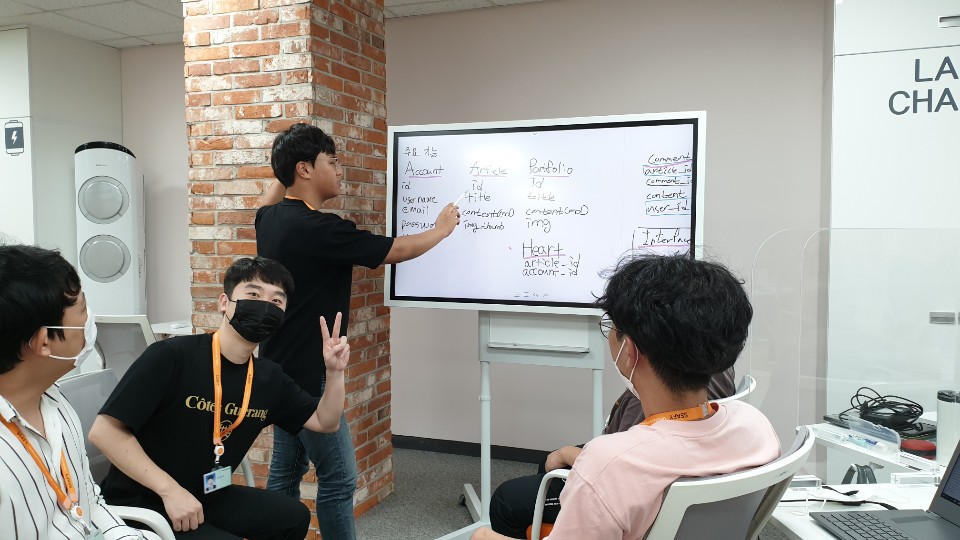 주요 기능
Account
id
username
email
passwo
Article
id
title
content(md)
img_thumb
Portfolio
id
title
content(md)
img
Heart
article_id
account_id
Comment
article_id
comment_id
content
user_id
Interface
LA
CHA
Côte Guerrang
SSAFY